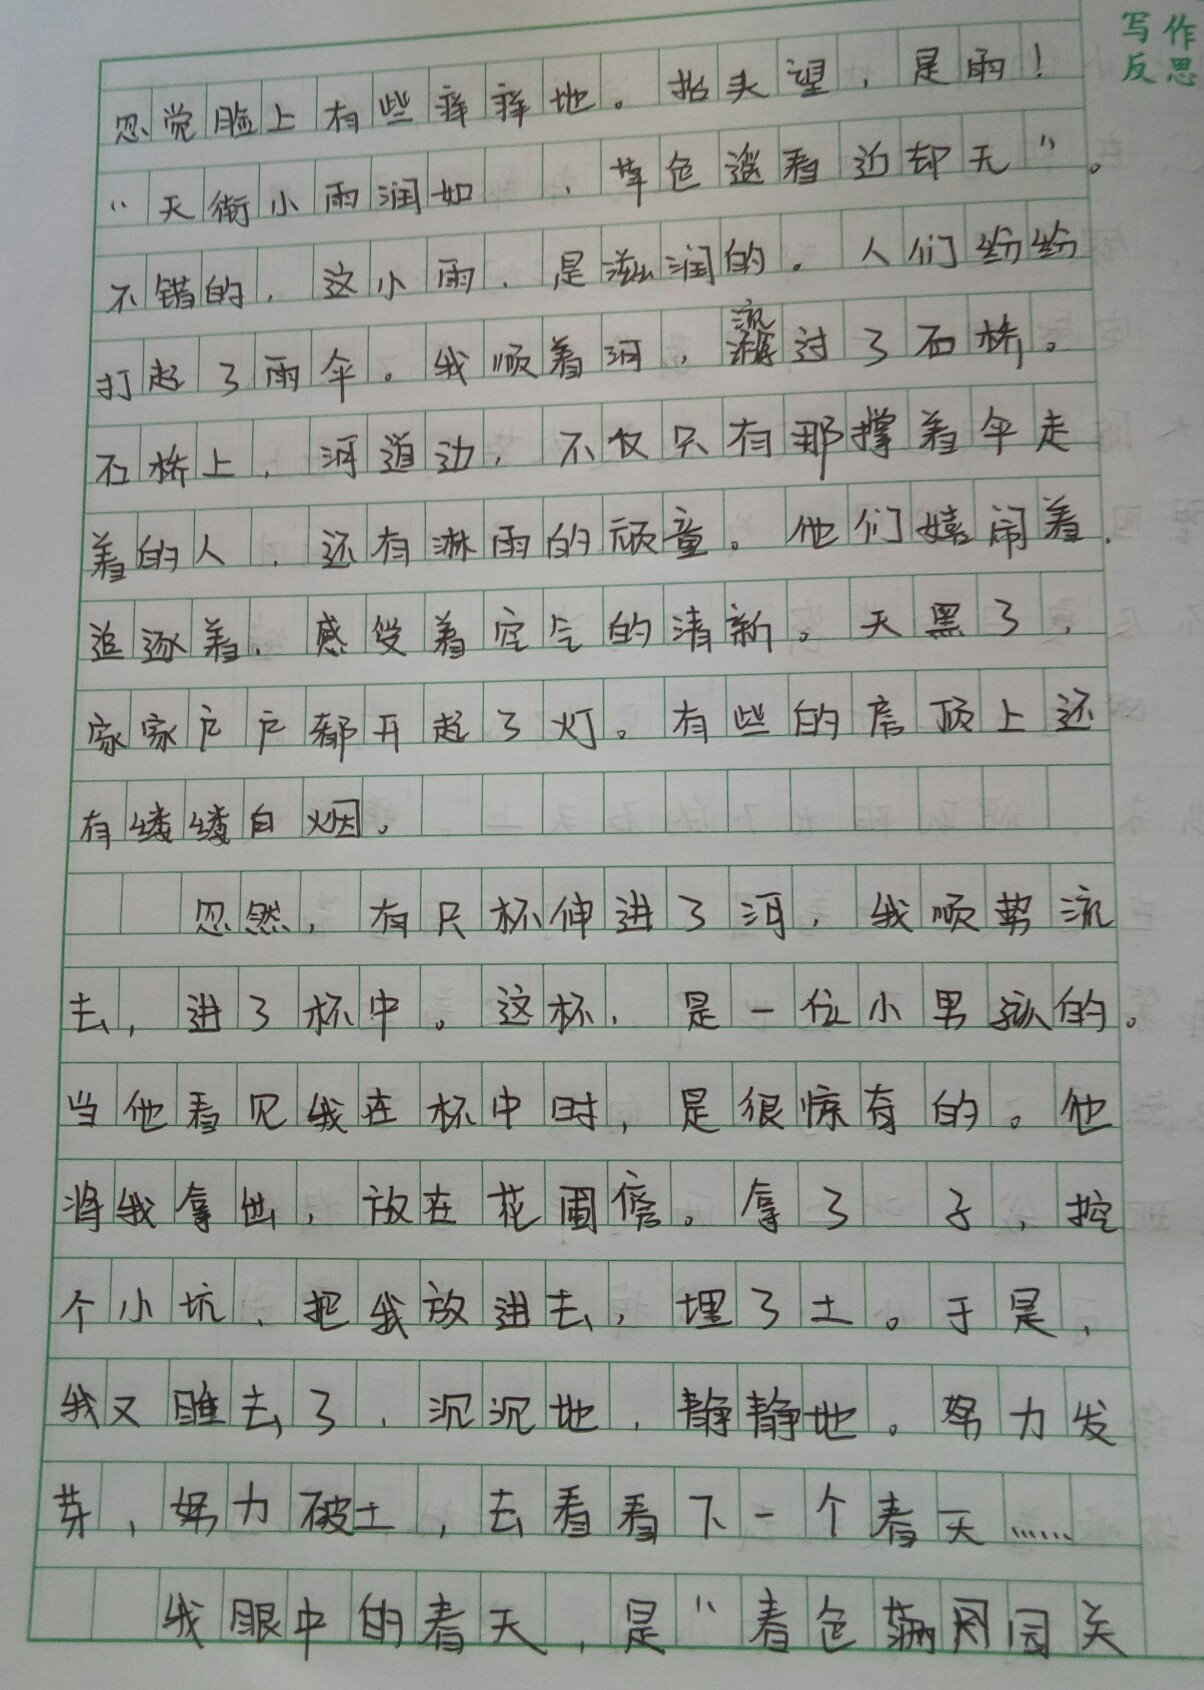 写作
反思
忽觉脸上有些痒痒地。抬头望，是雨！
“天街小雨润如 ，草色遥看近却无”。
不错的，这小雨，是滋润的。人们纷纷
打起了雨伞。我顺着河，流过了石桥。
石桥上，河道边，不仅只有那撑着伞走
着的人，还有淋雨的顽童。他们嬉闹着，
追逐着，感受着空气的清新。天黑了，
家家户户都开起了灯。有些的房顶上还
有缕缕白烟。
忽然，有只杯伸进了河，我顺势流
去，进了杯中。这杯，是一位小男孩的。
当他看见我在杯中时，是很惊奇的。他
将我拿出，放在花圃旁。拿了 子，挖
个小坑，把我放进去，埋了土。于是，
我又睡去了，沉沉地，静静地。努力发
芽，努力破土，去看看下一个春天……
我眼中的春天，是“春色满园关